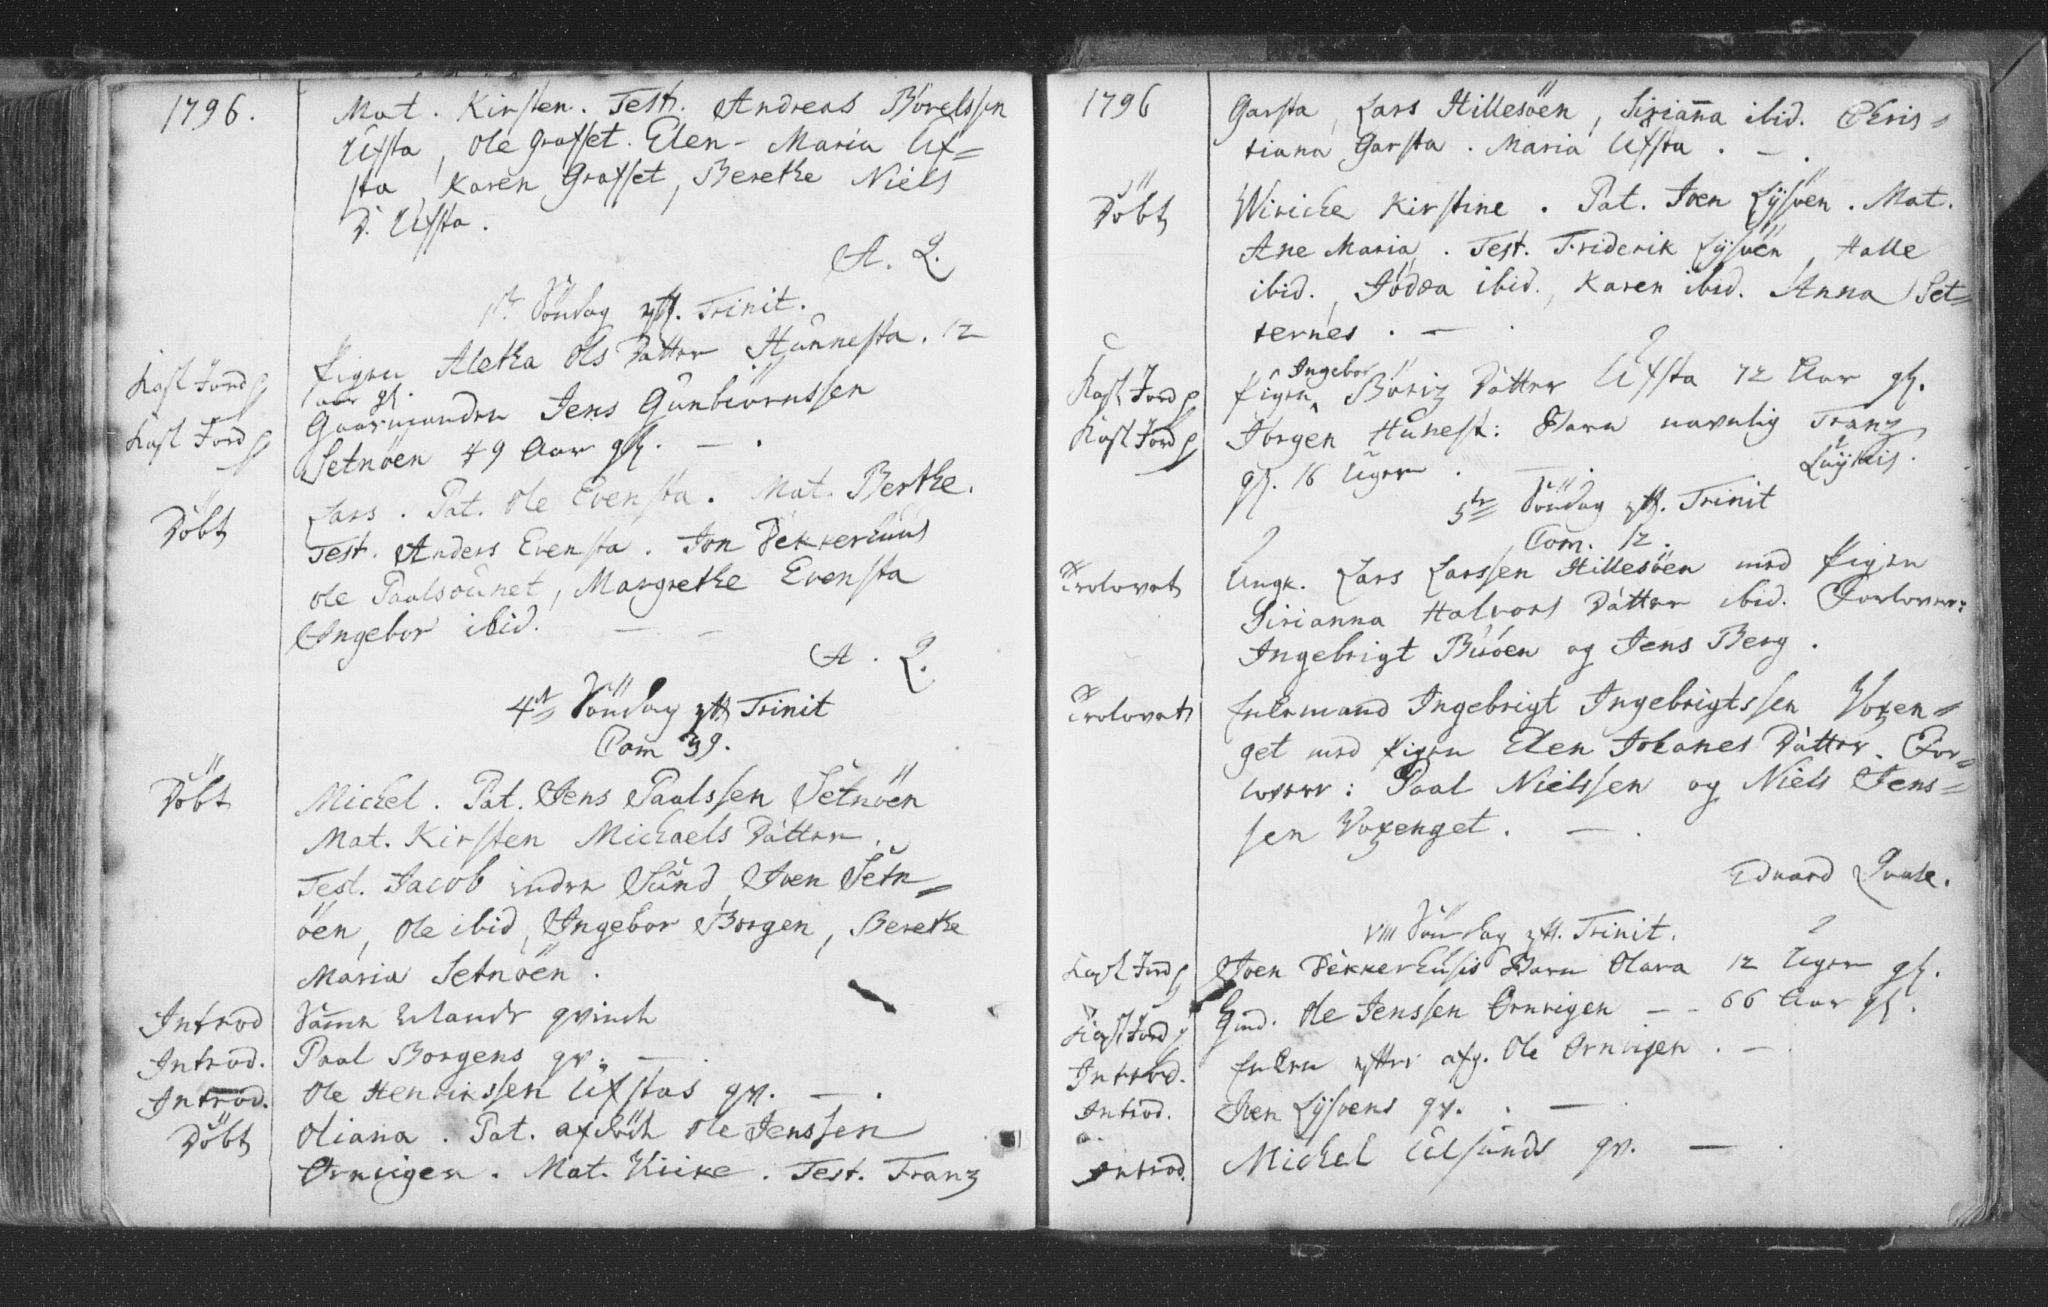 1796.
Mat. Kirsten. Test. Andreas Börelssen
Ufsta, Ole Grafset. Elen-Maria Uf=
sta, Karen Grafset, Berethe Niels
D. Ufsta.
A. Q.
1ste Söndag eft. Trinit.
Kast Jord p Pigen Aletha Ols Datter Hunnesta. 12
aar gl.
Kast Jord p Gaarmanden Jens Gunbiörnssen
Setnöen 49 Aar gl. — .
Döbt Lars. Pat. Ole Evensta. Mat. Berthe.
Test. Anders Evensta. Jon Dekkerhuus
Ole Paalsounet, Margrethe Evensta
Ingebor ibid. — —
A. Q.
4de Söndag eft. Trinit
Com 39.
Döbt Michel. Pat. Jens Paalssen Setnöen
Mat. Kirsten Michaels Datter.
Test. Jacob indre Sund, Iven Setn=
öen, Ole ibid, Ingebor Borgen, Berethe
Maria Setnöen.
Introd qvinde
Introd. Paal Borgens qv. — .
Introd. Ole Henrikssen Ufstas qv. — .
Döbt Oliana. Pat. afdöde Ole Jenssen
Ornvigen. Mat. Test. Franz
1796
Garsta, Lars Hillesöen, Sirianna ibid. Chris=
tiana Garsta. Maria Ufsta. — .
Döbt Wiriche Kirstine. Pat. Iven Lysöen. Mat.
Ane Maria. Test. Friderik Lysöen, Halle
ibid., Jödea ibid., Karen ibid. Anna Set=
ternes. — .
Kast Jord p Pigen Ingebor Böriz Datter Ufsta 72 Aar gl.
Kast Jord p Jörgen Hunest: Barn navnlig Franz
gl. 16 Uger. —
5te Söndag eft. Trinit
Com. 12.
Trolovet Ungk. Lars Larssen Hillesöen med Pigen
Sirianna Halvors Datter ibid. Forlover:
Ingebrigt Buöen og Jens Berg.
Trolovet Enkemand Ingebrigt Ingebrigtssen Voxen=
get med Pigen Elen Johanes Datter. For=
lovere: Paal Nielssen og Niels Jens=
sen Voxenget. — .
Edvard Qvale.
VIII Söndag eft. Trinit.
Kast Jord p Iven Dekkerhusis Barn Olava 12 Uger gl.
Kast Jord p Gmd. Ole Jenssen Ornvigen — - 66 Aar gl.
Introd. Enken efter afg. Ole Ornvigen. —
Introd. Iven Lysöens qv. . —
Introd. Michel Ulsunds qv. — .